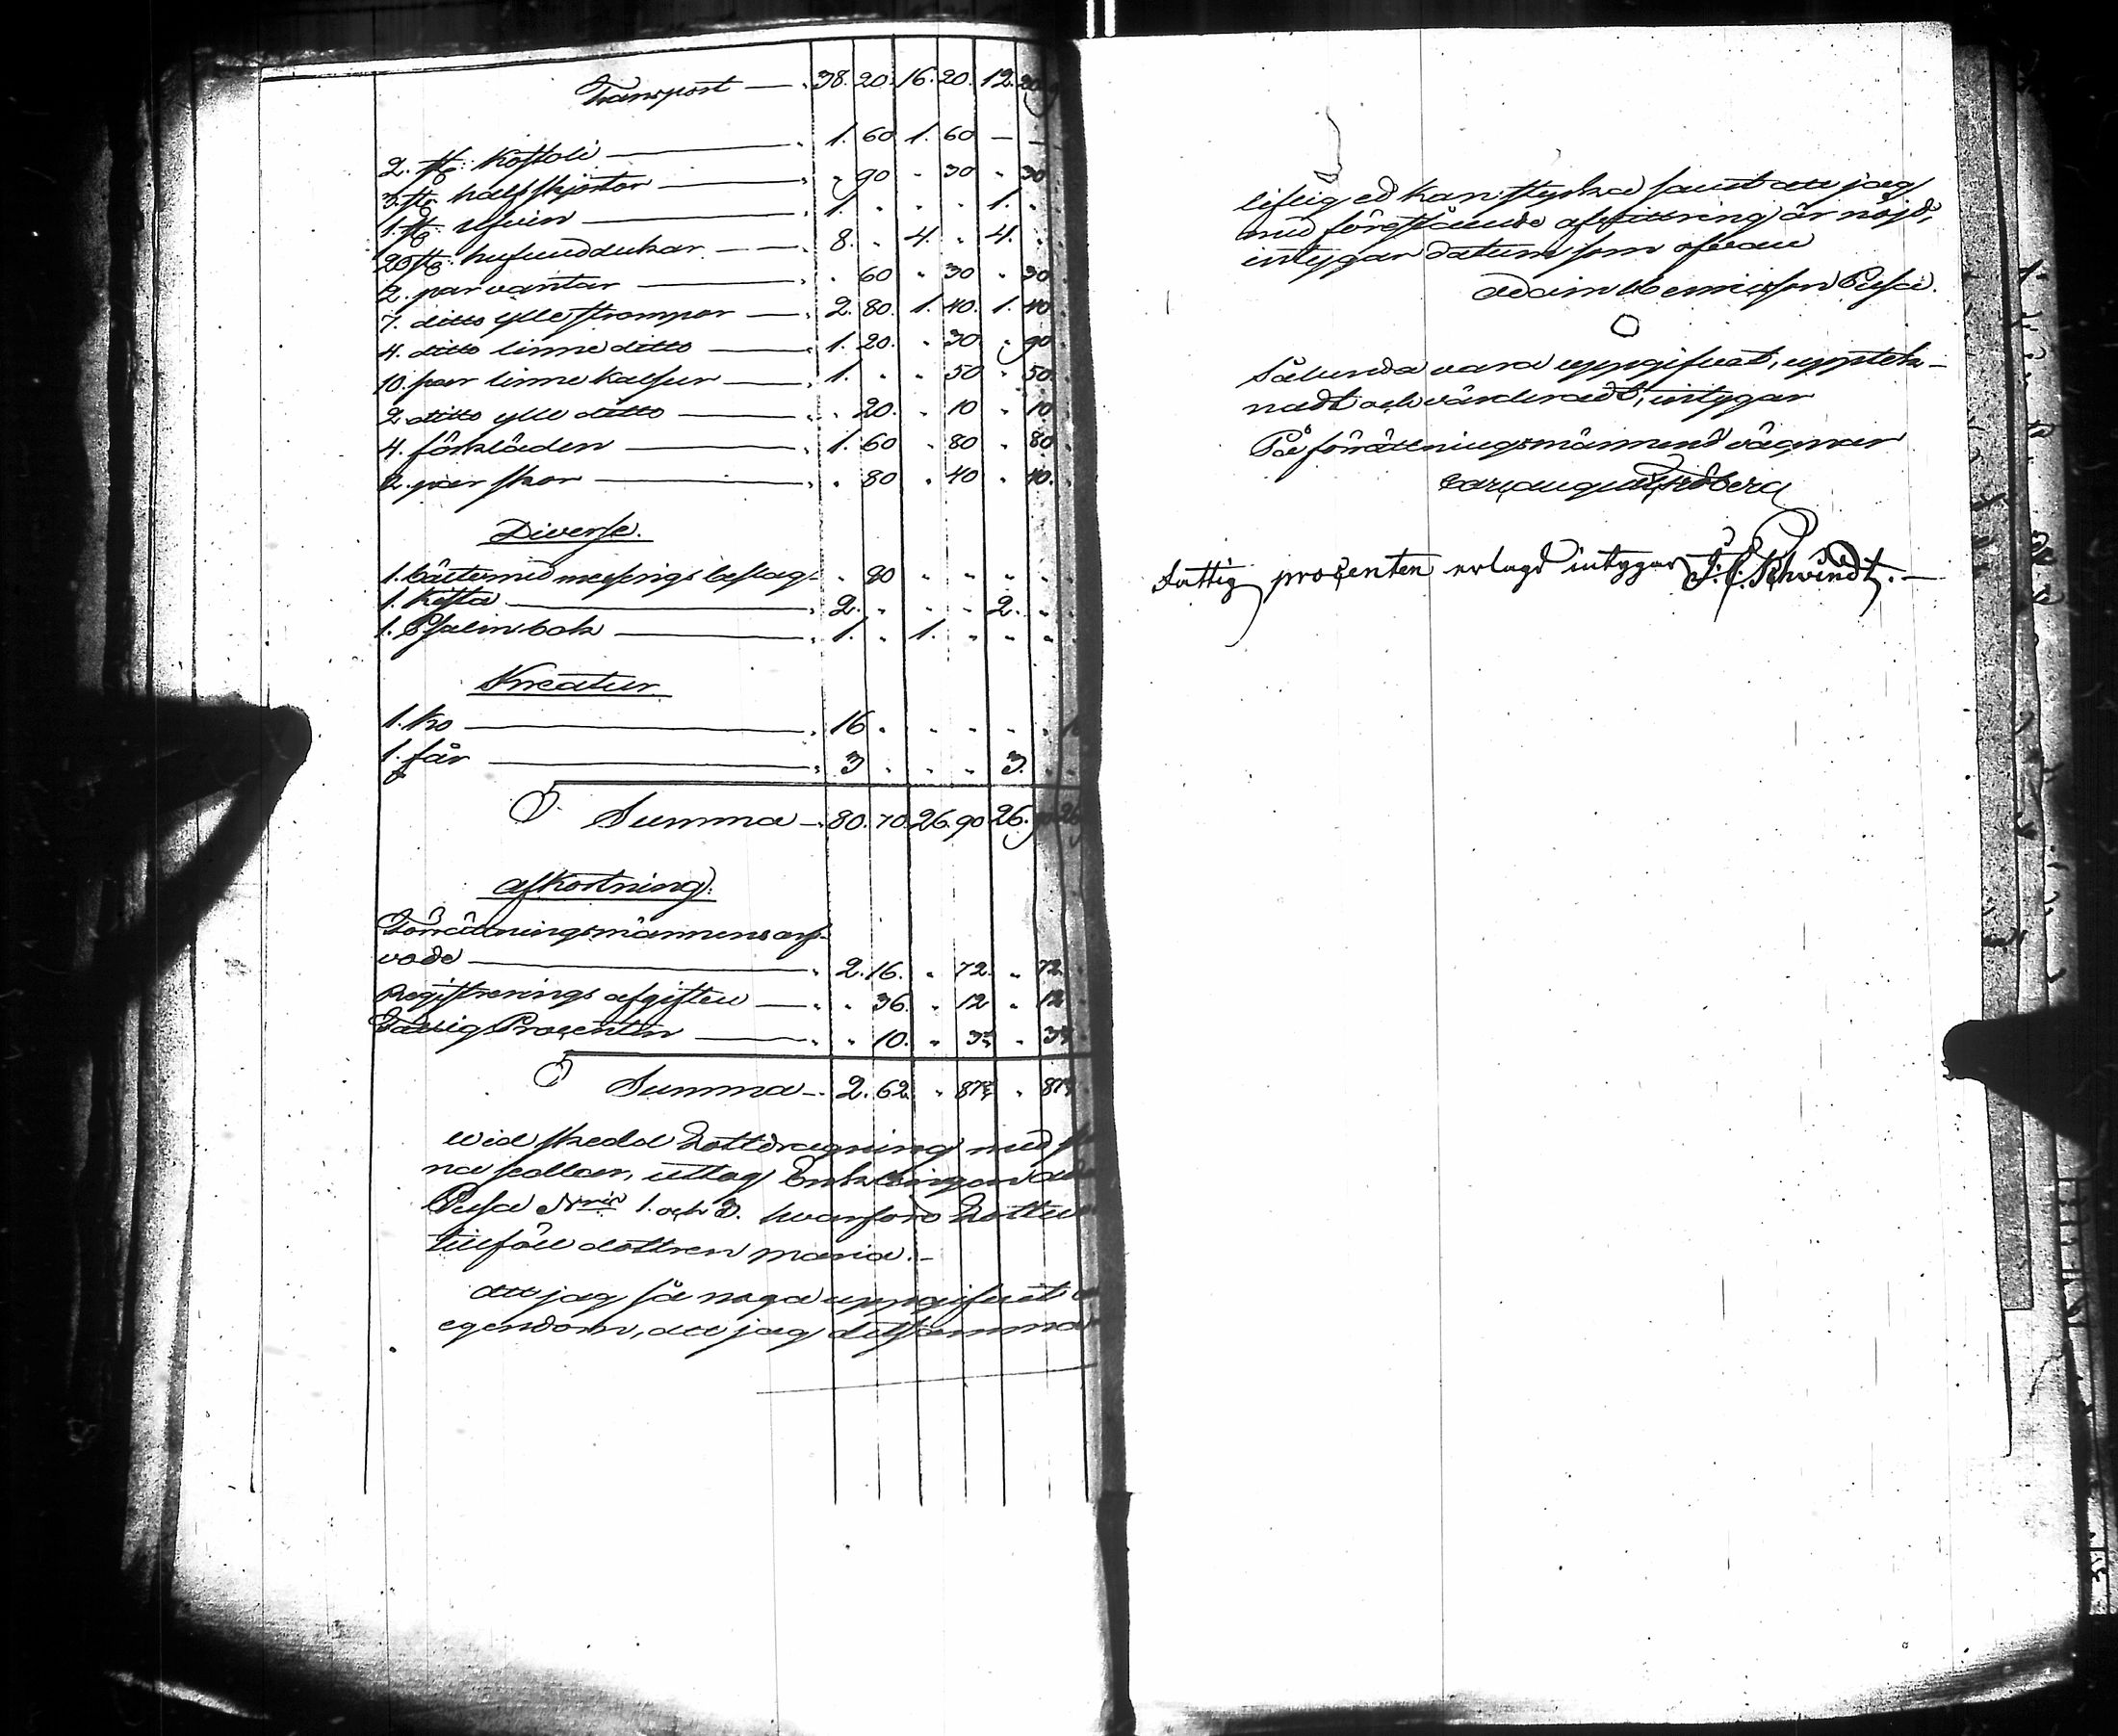 Transport — 38. 20. 16. 20. 12. 20
2. st: Kostoli — 1. 60 1. 60 — —
3. st: halfskjortor — " 90 " 30 " 30
1. st: — 1. " " " 1. "
20 st: hufvuddukar — 8. " 4. " 4. "
2. par vantar — " 60 " 30 " 30
7. ditto ylle strumpor — 2. 80. 1. 40. 1. 40
4. ditto linne ditto — 1. 20. " 30 " 90
10. par linne kalsur — 1. " " 50 " 50.
2 ditto ylle ditto — " 20. " 10 " 10
4. förkläden — 1. 60 " 80 " 80
2. par skor — " 80 " 40 " 40.
Diverse.
1. bälte med messings beslag — " 90 " " " "
1. Kista — 2. " " " 2. "
1. Psalmbok — 1. " 1. " " "
Kreatur
1. Ko — 16 " " " " "
1. får — 3 " " " 3. "
Summa — 80. 70. 26. 90 26. 90 26
Afkortning:
Förrättningsmännens arf-
vode — 2. 16. " 72. " 72
Registrerings afgiften — " 36. " 12 " 12
Fattig Procenten — " 10. " 3⅓ " 3⅓
Summa — 2. 62. " 87⅓ " 87⅓
Wid skedd Lottdragning med
na sedlar, uttog Enklingen
Pusa N:ris 1. och 3. hvarförd Lotten
tillföll dottren Maria. —
Att jag så noga uppgifvit
egendom, att jag detsamma
liflig ed kan styrka samt att jag
med förestående afvittring är nöjd,
intygar datum som ofvan
Adam Henricsson Pusa.
Sålunda vara uppgifvet, uppteck-
nadt och värderadt, intygar
På förrättningsmännens vägnar
Carl August Lindberg
Fattig procenten erlagd intygar J. E. Schvindt. —